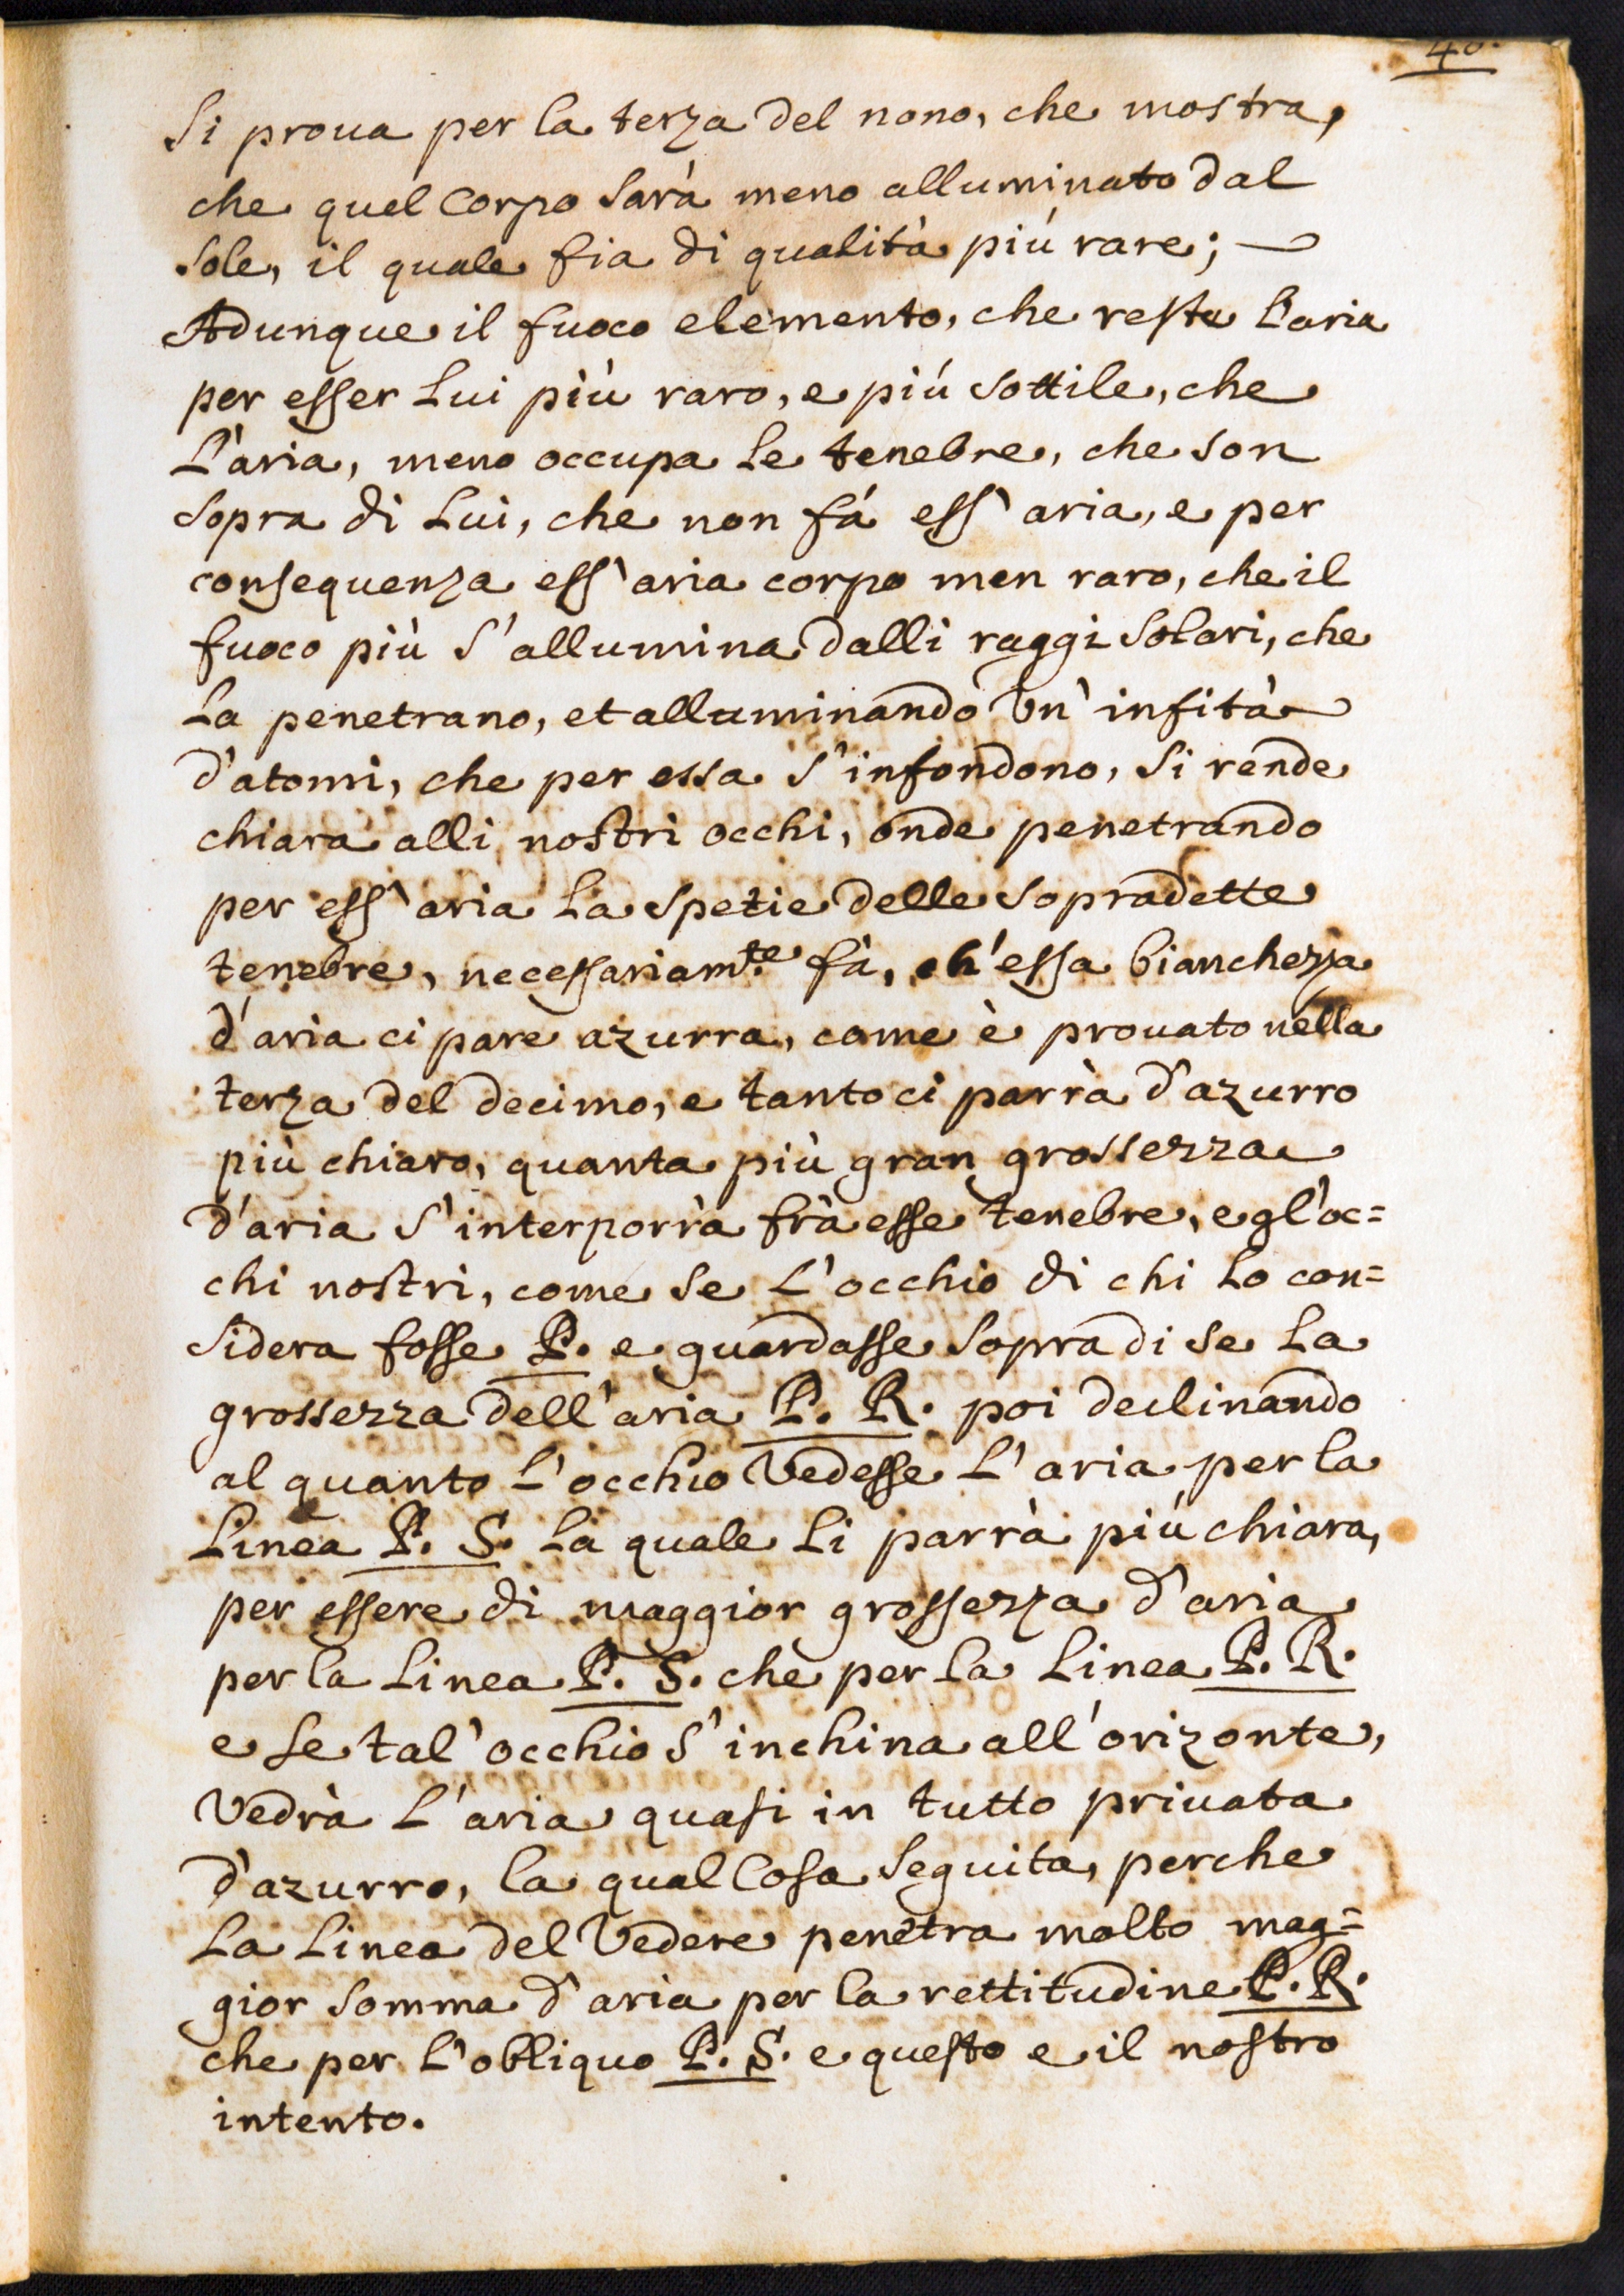 40.
Si proua per la terza del nono, che mostra,
che quel Corpo sarà meno alluminato dal
sole, il quale fia di qualità più rare; —
Adunque il fuoco elemento, che resta l'aria
per esser lui più raro, e più sottile, che
l'aria, meno occupa le tenebre, che son
sopra di lui, che non fá ess' aria, e per
consequenza ess' aria corpo men raro, che il
fuoco più s'allumina dalli raggi solari, che
la penetrano, et alluminando un' infità
d'atomi, che per essa s'infondono, si rende
chiara alli nostri occhi, onde penetrando
per ess' aria la spetie delle sopradette
tenebre, necessariam.te fà, ch'essa bianchezza
d'aria ci pare azurra, come è prouato nella
terza del decimo, e tanto ci parrà d'azurro
più chiaro, quanta più gran grossezza
d'aria s'interporrà frà esse tenebre, e gl'oc=
chi nostri, come se l'occhio di chi lo con=
sidera fosse P. e guardasse sopra di se la
grossezza dell'aria P. R. poi declinando
al quanto l'occhio Vedesse l'aria per la
linea P. S. la quale li parrà più chiara,
per essere di maggior grossezza d'aria
per la linea P. S. che per la linea P. R.
e se tal'occhio s'inchina all'orizonte,
Vedrà l'aria quasi in tutto priuata
d'azurro, la qual Cosa seguita, perche
la linea del Vedere penetra molto mag=
gior somma d'aria per la rettitudine P. R.
che per l'obliquo P. S. e questo e il nostro
intento.